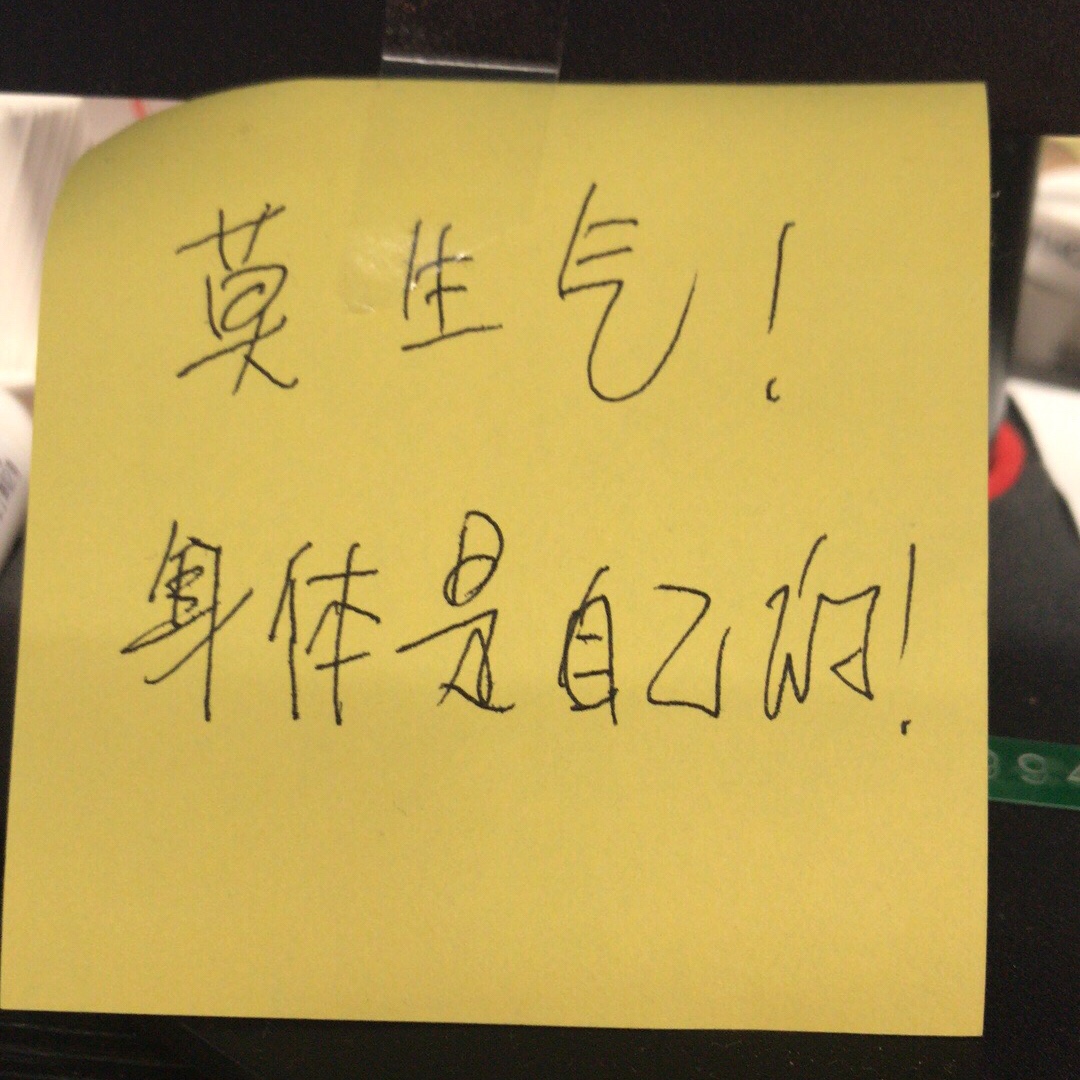 莫生气!
身体是自己的!
94